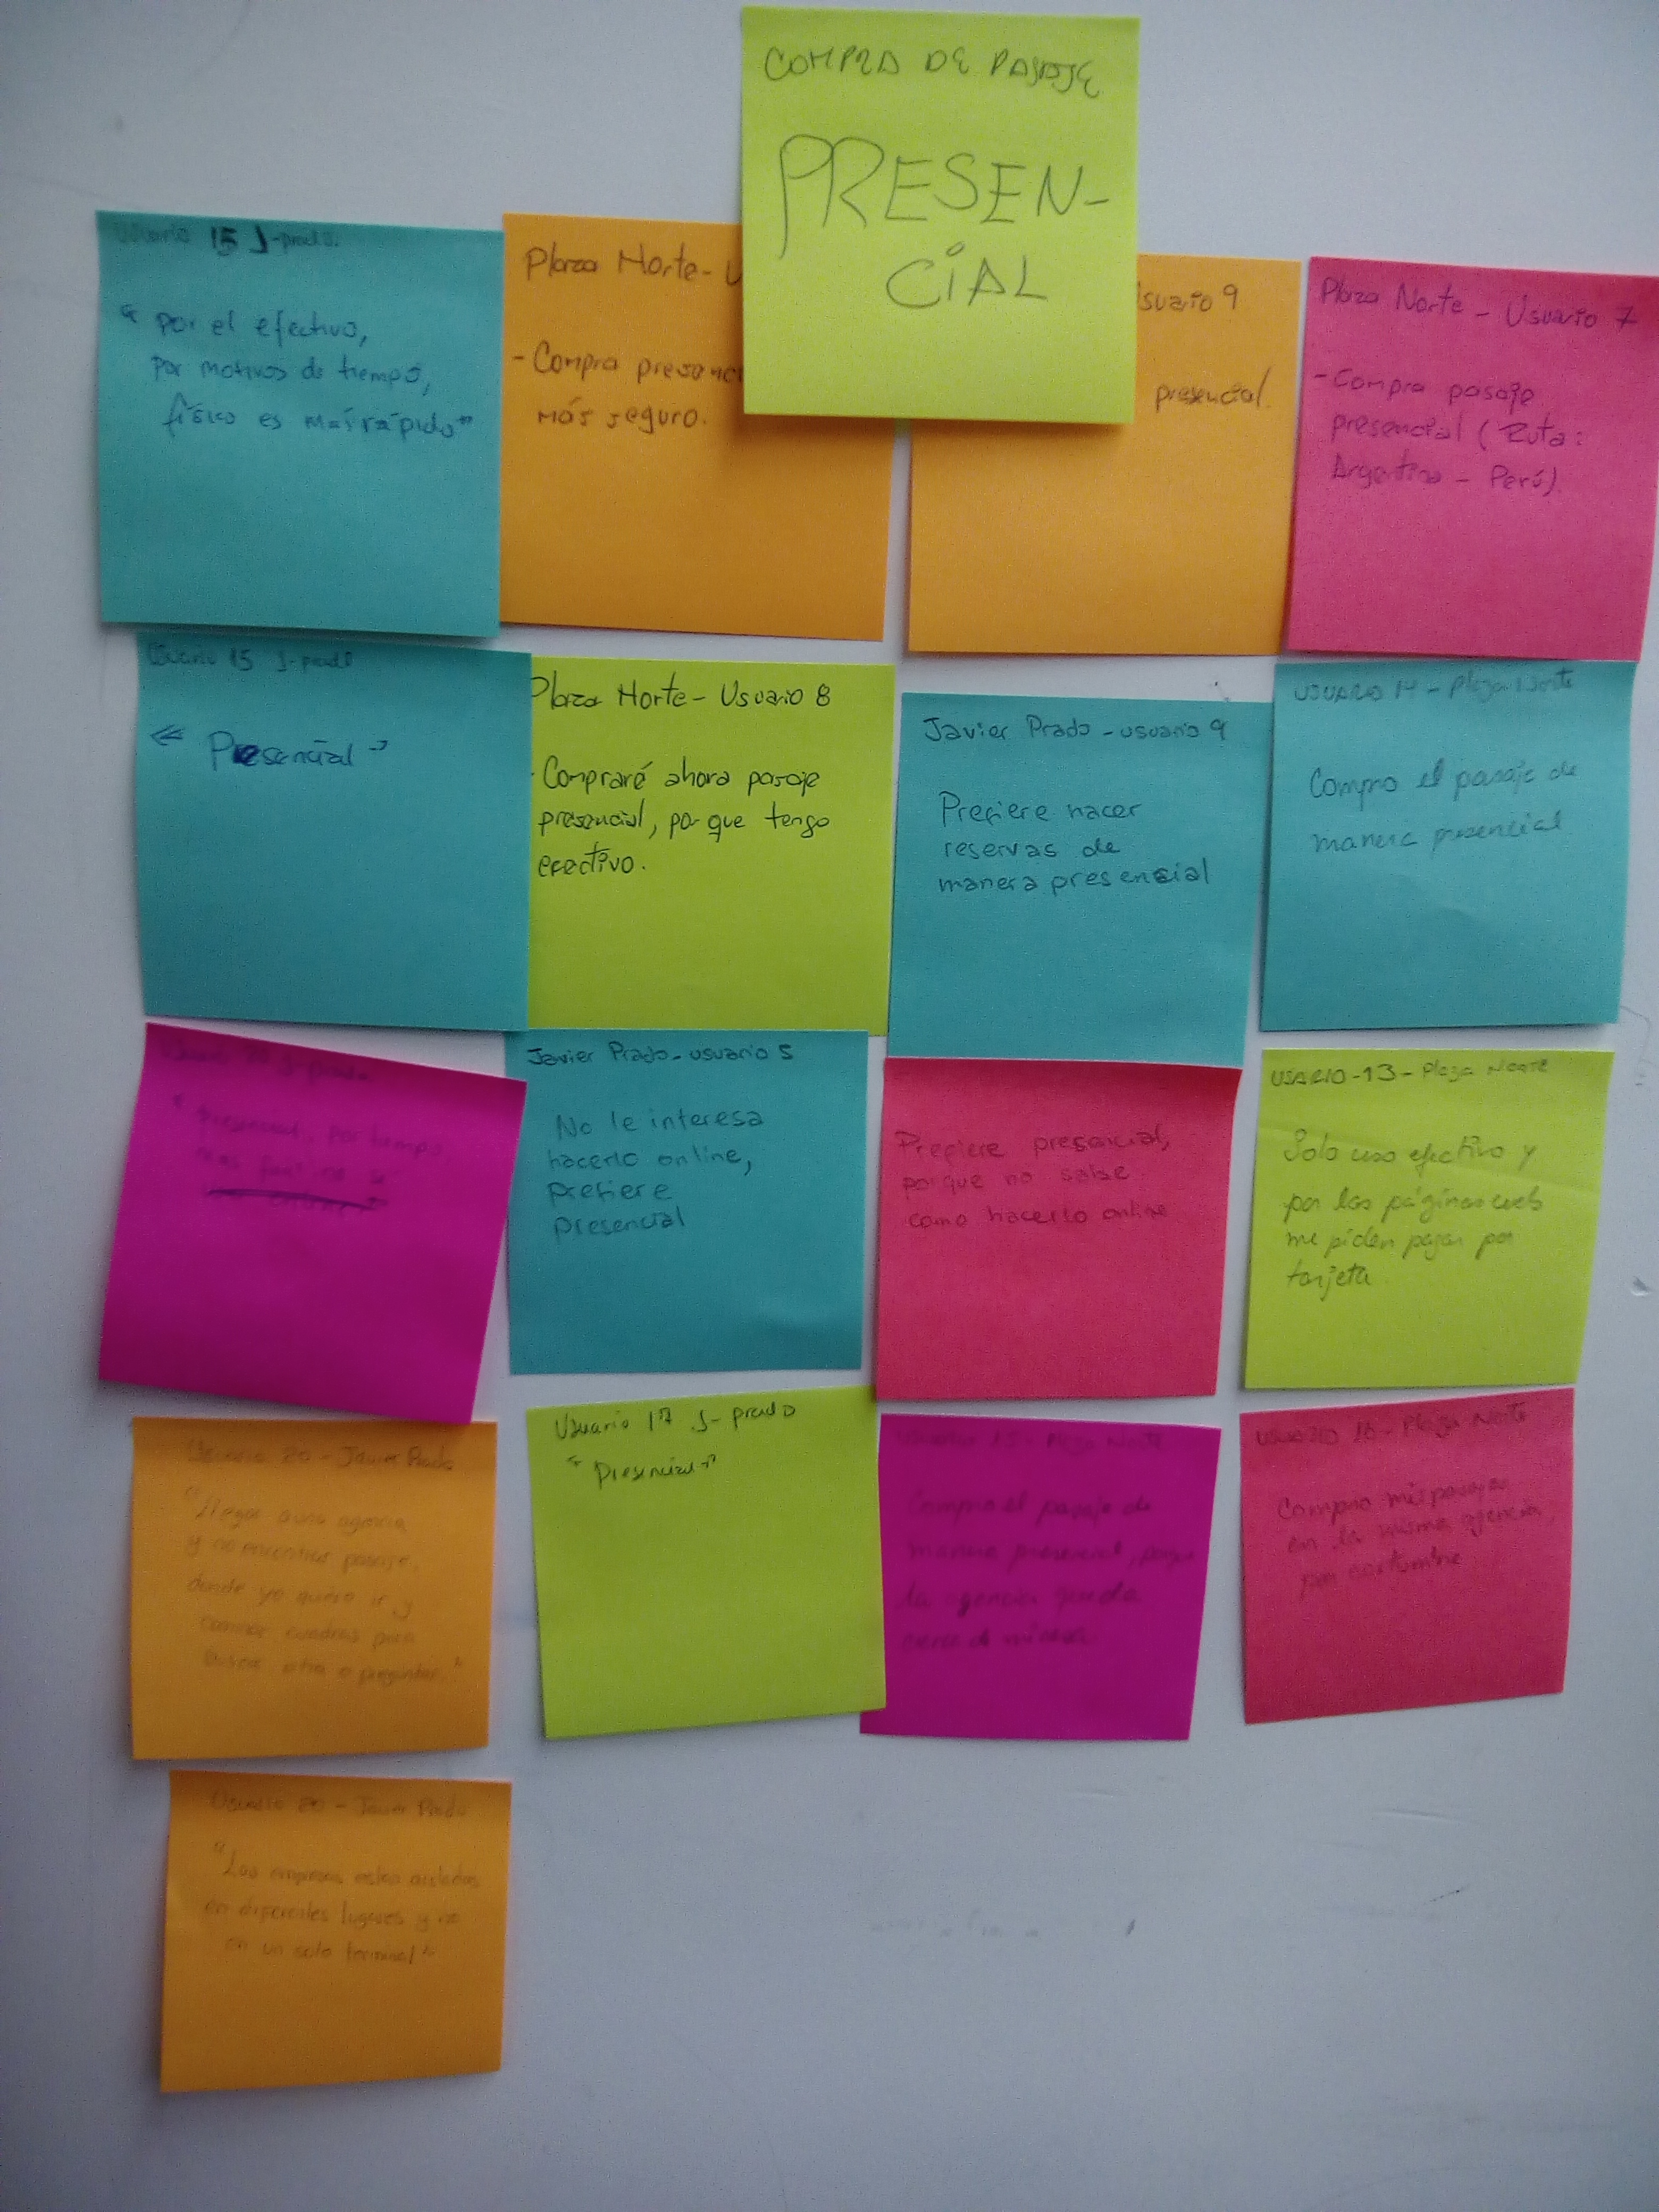 COMPRA DE PASAJE
PRESEN-
CIAL
Usuario 15 J-prado.
"por el efectivo,
por motivos de tiempo,
físico es más rápido"
Plaza Norte - U
- Compra presenc
más seguro.
suario 9
presencial.
Plaza Norte - Usuario 7
- Compra pasaje
presencial (Ruta:
Argentina - Perú).
Usuario 15 J-prado
"Presencial"
Plaza Norte - Usuario 8
- Compraré ahora pasaje
presencial, por que tengo
efectivo.
Javier Prado - usuario 9
Prefiere hacer
reservas de
manera presencial
USUARIO 14 - Plaza Norte
Compro el pasaje de
manera presencial
Usuario 20 J-prado
"Presencial, por tiempo,
Javier Prado - usuario 5
No le interesa
hacerlo online,
prefiere
presencial
Prefiere presencial,
porque no sabe
como hacerlo online
USARIO-13 - Plaza Norte
Solo uso efectivo y
por las páginas web
me piden pagar por
tarjeta.
Usuario 20 - Javier Prado
"Llegar a una agencia
y no encontrar pasaje,
donde yo quiero ir y
caminar cuadras para
buscar otra o preguntar."
Usuario 17 J-prado
"Presencial"
Usuario 15 - Plaza Norte
Compro el pasaje de
manera presencial, porque
la agencia queda
cerca de mi casa.
USUARIO 16 - Plaza Norte
Compro mis pasajes
en la misma agencia,
por costumbre
Usuario 20 - Javier Prado
"Las empresas estan aisladas
en diferentes lugares y no
en un solo terminal"